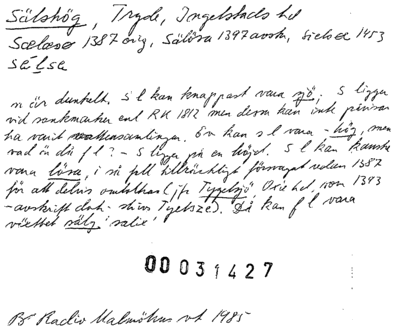 Sälshög, Tryde, Ingelstads hd
Sælæsø 1387 orig, Sälösa 1397 avskr, Sielsø 1453
sè̀lsa
n är dunkelt. S l kan knappast vara sjö; S ligger
vid sankmarker enl RK 1812 men dessa kan inte
ha varit vattensamlingar. En kan s l vara -hög, men
vad är då f l? - S ligger på en höjd. S l kan kanske
vara lösa, i så fall tillräckligt försvagat redan 1387
för att delvis omtolkas (jfr Tygelsjö Oxie hd, som 1343
-avskrift dock- skrivs Tyelsze). Då kan f l vara
växttet sälg 'salix'
00031427
Br Radio Malmöhus vt 1985